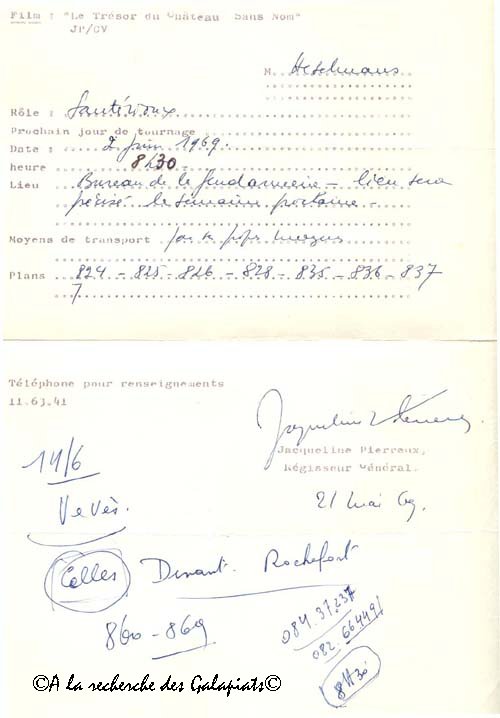 Film : "Le Trésor du Château Sans Nom"
JP/CV
M. Heselmans
Rôle : Santérioux
Prochain jour de tournage
Date : 2 juin 1969.
heure 8h30 -
Lieu Bureau de la Gendarmerie - lieu sera
précisé la semaine prochaine. -
Moyens de transport
Plans 824 - 825 - 826 - 828 - 835 - 836 - 837
Téléphone pour renseignements
11.63.41
Jacqueline Pierreux,
Régisseur Général.
21 Mai 69.
14/6
Vevès.
Celles Dinant. Rochefort
860 - 869
084.37.237
082.66449
8H30
©A la recherche des Galapiats©